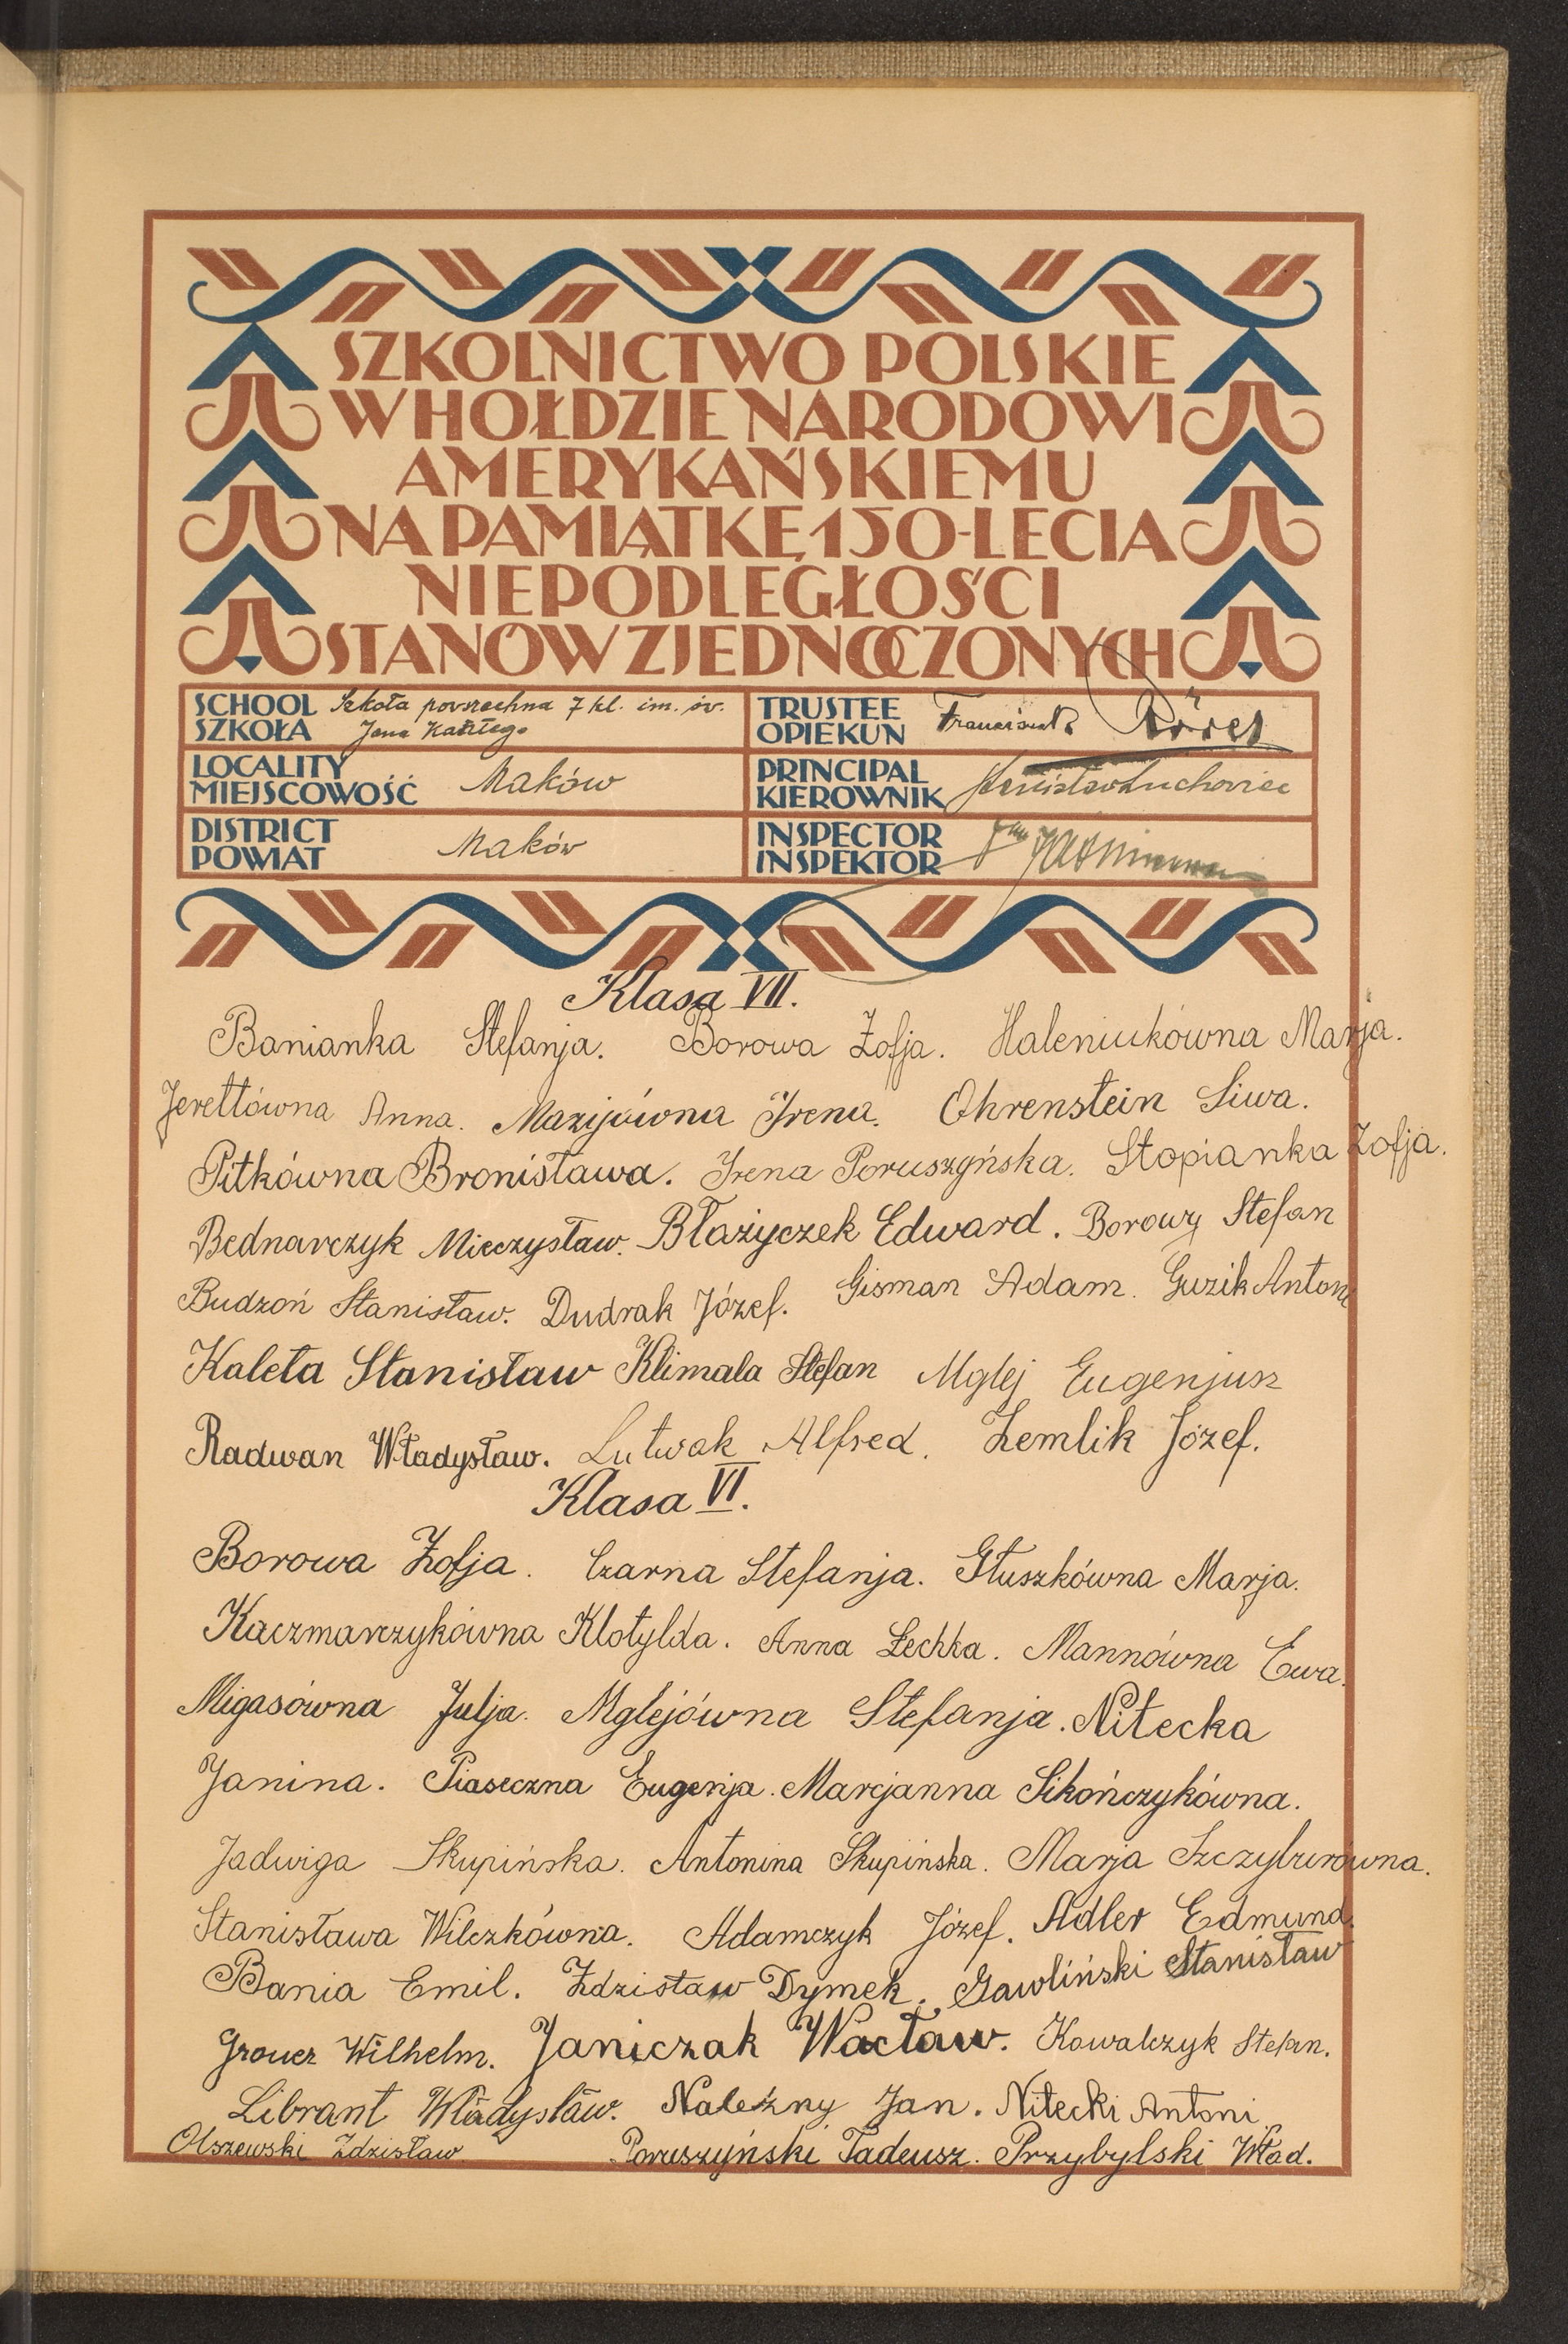 SZKOLNICTWO POLSKIE
W HOŁDZIE NARODOWI
AMERYKAŃSKIEMU
NA PAMIĄTKĘ 150-LECIA
NIEPODLEGŁOŚCI
STANÓW ZJEDNOCZONYCH
SCHOOL SZKOŁA Szkoła powszechna 7 kl. im. św.
Jana Kantego
TRUSTEE OPIEKUN Franciszek
LOCALITY MIEJSCOWOŚĆ Maków
PRINCIPAL KIEROWNIK
DISTRICT POWIAT Maków
INSPECTOR INSPEKTOR
Klasa VII.
Banianka Stefanja. Borowa Zofja. Haleniukówna Marja.
Jerettówna Anna. Mazijówna Irena. Ohrenstein Siwa.
Pitkówna Bronisława. Irena Poruszyńska. Stopianka Zofja.
Bednarczyk Mieczysław. Błażyczek Edward. Borowy Stefan
Budzoń Stanisław. Dudrak Józef. Gisman Adam. Guzik Antoni
Kaleta Stanisław Klimala Stefan Mglej Eugenjusz
Radwan Władysław. Lutwak Alfred. Zemlik Józef.
Klasa VI.
Borowa Zofja. Czarna Stefanja. Głuszkówna Marja.
Kaczmarczykówna Klotylda. Anna Łechka. Mannówna Ewa.
Migasówna Julja. Mglejówna Stefanja. Nitecka
Janina. Piaseczna Eugenja. Marcjanna Sikończykówna.
Jadwiga Skupińska. Antonina Skupińska. Marja
Stanisława Wilczkówna. Adamczyk Józef. Adler Edmund.
Bania Emil. Zdzisław Dymek. Gawliński Stanisław
Grouer Wilhelm. Janiczak Wacław. Kowalczyk Stefan.
Librant Władysław. Należny Jan. Nitecki Antoni
Olszewski Zdzisław Poruszyński Tadeusz. Przybylski Wład.